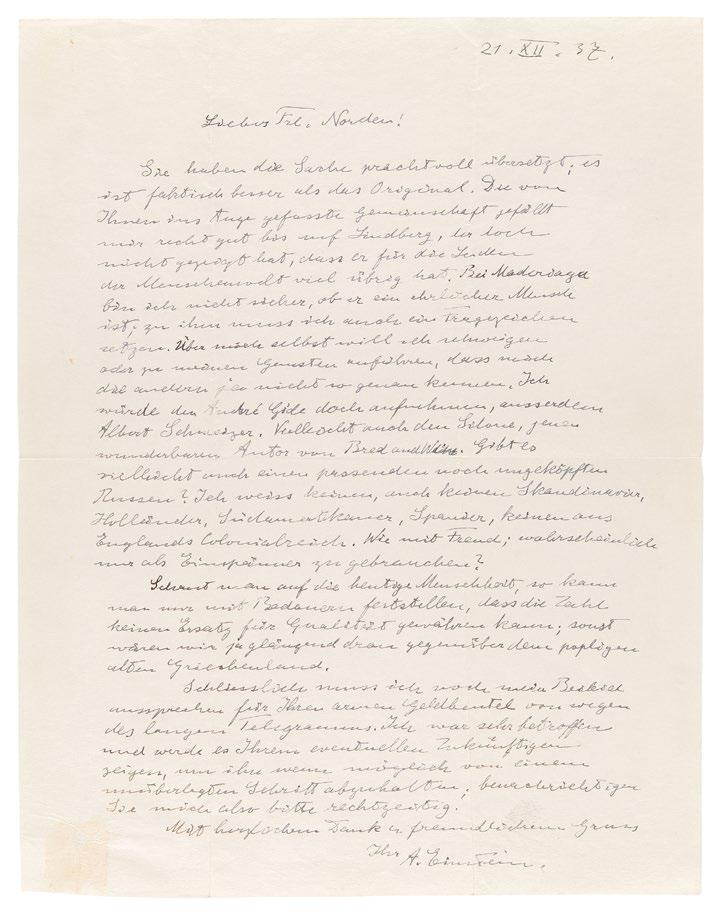 21. XII. 37.
Liebes Frl. Norden!
Sie haben die Sache prachtvoll übersetzt; es
ist faktisch besser als das Original. Die von
Ihnen ins Auge gefasste Gemeinschaft gefällt
mir recht gut bis auf Lindberg, der doch
nicht gezeigt hat, dass er für die Leiden
der Menschenwelt viel übrig hat. Bei Maderiaga
bin ich nicht sicher, ob er ein ehrlicher Mensch
ist; zu ihm muss ich auch ein Fragezeichen
setzen. Über mich selbst will ich schweigen
oder zu meinen Gunsten anführen, dass mich
die andern ja nicht so genau kennen. Ich
würde den André Gide doch aufnehmen, ausserdem
Albert Schweizer. Vielleicht auch den Silone, jenen
wunderbaren Autor von Bred and Wine. Gibt es
vielleicht auch einen passenden noch ungeköpften
Russen? Ich weiss keinen, auch keinen Skandinavier,
Holländer, Südamerikaner, Spanier, keinen aus
Englands Colonialreich. Wie mit Freud; wahrscheinlich
nur als Einspänner zu gebrauchen?
Schaut man auf die heutige Menschheit, so kann
man nur mit Bedauern feststellen, dass die Zahl
keinen Ersatz für Qualität gewähren kann; sonst
wären wir ja glänzend dran gegenüber dem popligen
alten Griechenland.
Schliesslich muss ich noch mein Beileid
aussprechen für Ihren armen Geldbeutel von wegen
des langen Telegramms. Ich war sehr betroffen
und werde es Ihrem eventuellen Zukünftigen
zeigen, um ihn wenn möglich von einem
unüberlegten Schritt abzuhalten; benachrichtigen
Sie mich also bitte rechtzeitig.
Mit herzlichem Dank u freundlichem Gruss
Ihr A. Einstein.